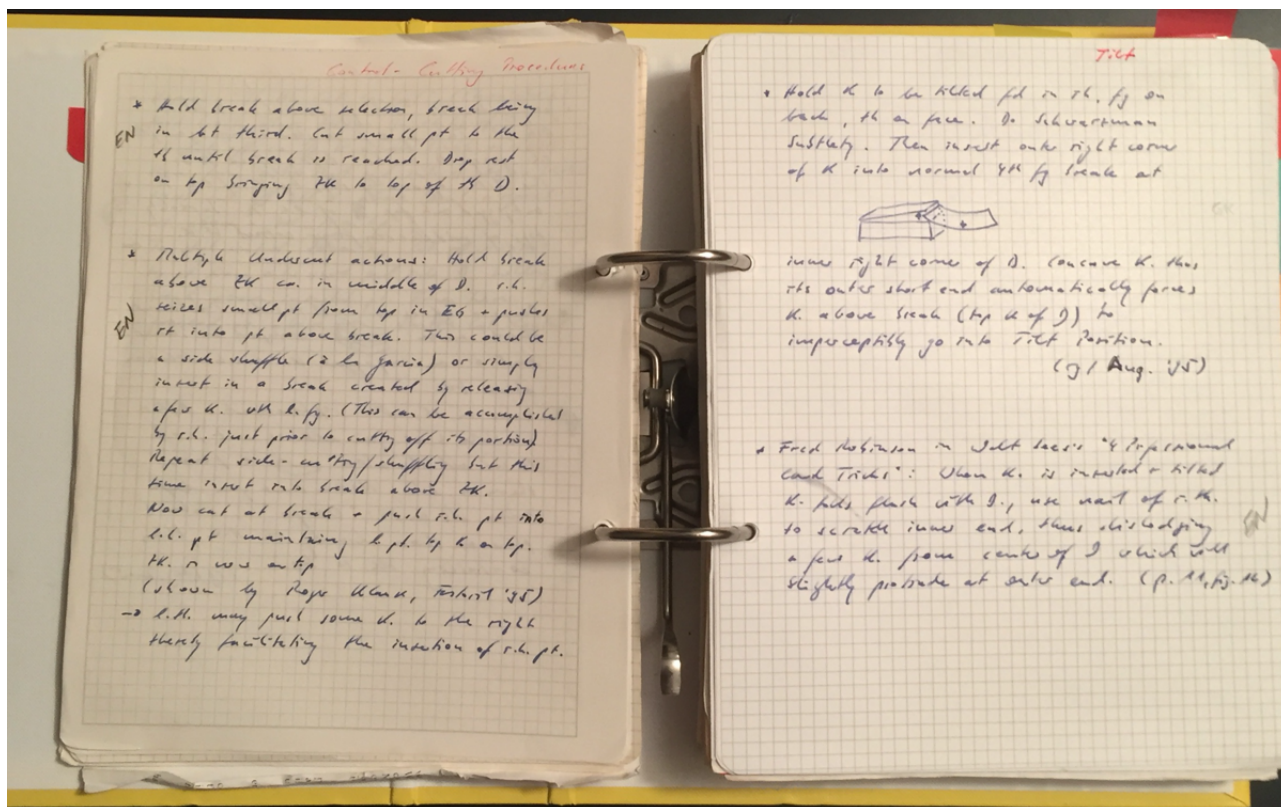 Control - Cutting Procedures
* Hold break above selection, break being
EN
in bt third. Cut small pt to the
th until break is reached. Drop rest
on top bringing ZK to top of th D.
* Multiple Undercut actions: Hold break
above ZK ca. in middle of D. r.h.
EN
seizes small pt from top in EG + pushes
it into pt above break. This could be
a side shuffle (à la Garcia) or simply
insert in a break created by releasing
a few K. with l.fg. (This can be accomplished
by r.h. just prior to cutting off its portion)
Repeat side-cutting/shuffling but this
time insert into break above ZK.
Now cut at break + push r.h. pt into
l.h. pt maintaining l.pt. top K on top.
ZK is now on top
(shown by Roger, '95)
→ l.h. may push some K. to the right
thereby facilitating the insertion of r.h. pt.
Tilt
* Hold K to be tilted fd in rh, fg on
back, th on face. Do Schwarzman
Subtlety. Then insert outer right corner
of K into normal 4th fg break at
inner right corner of D. Concave K. thus
its outer short end automatically forces
K. above break (top K of D) to
imperceptibly go into Tilt Position.
(gj Aug. '95)
* Fred Robinson in Walt Lees's "4 Professional
Card Tricks": When K. is inserted + tilted
K. falls flush with D., use nail of r.th.
to scratch inner end, thus dislodging
EN
a few K. from center of D which will
slightly protrude at outer end. (p. 11, fig. 16)